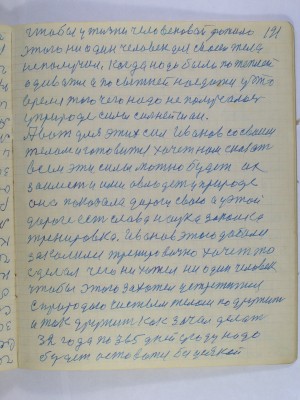 чтобы у жизни человековой было 191
этого ни один человек для своего тела
не получил. Когда надо было потеплей
одевати а посвежей наедати у это
время того чего надо не получалось
у природе силы сильнеишаи.
А вот для этих сил Иванов со своим
телом и готовится хочет нам сказать
всем эти силы можно будет их
занести и ими овладеть у природе
она показала дорогу свою а у этой
дороге есть слава наука законка
тренировка. Иванов этого добился
закалили тренировично хочет то
сделал чего ни хотел ни один человек
чтобы этого захотел устремился
с природою с чистым телом подружить
и так дружит как зачал делать
32 года по 365 дней у году надо
будет оставаться вицейкой